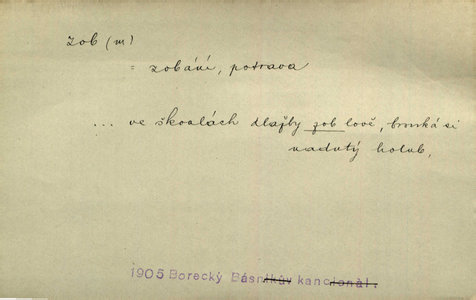 zob (m)
= zobání, potrava
... ve škvalách dlažby zob lově, brouká si
nadutý holub.
1905 Borecký Básníkův kancionál.